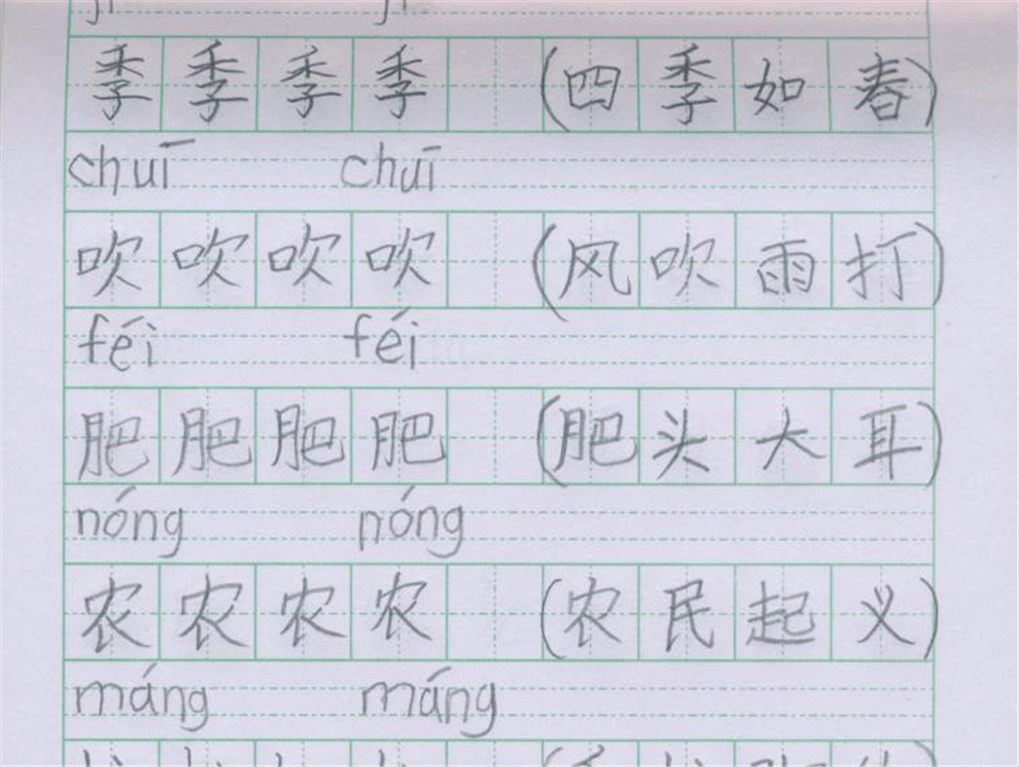 季季季季(四季如春)
chuī chuī
吹吹吹吹(风吹雨打)
féi féi
肥肥肥肥(肥头大耳)
nóng nóng
农农农农(农民起义)
máng máng